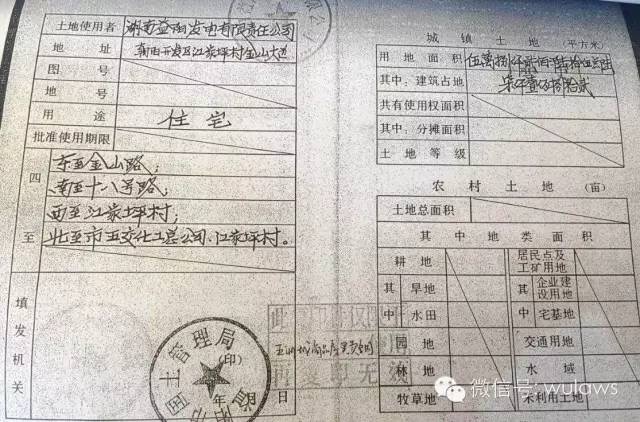 土地使用者 湖南益阳发电有限责任公司
地 址 朝阳开发区江家坪村金山大道
图 号
地 号
用 途 住宅
批准使用期限
四至
东至金山路;
南至十八号路;
西至江家坪村;
北至市五交化工总公司、江家坪村。
填发机关
土管理局
(印)
年 月 日
城 镇 土 地 (平方米)
用地面积
其中:建筑占地
共有使用权面积
其中:分摊面积
土地等级
农 村 土 地 (亩)
土地总面积
其 中 地 类 面 积
耕 地 居民点及工矿用地
其中 旱地 其中 企业建设用地
水田 宅基地
园 地 交通用地
林 地 水 域
牧草地 未利用土地
此复印件仅限于
商品房买卖合同
再复印无效
微信号: wulaws